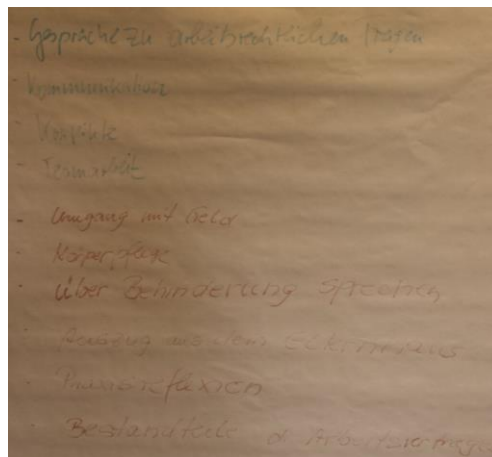 - Gespräche zu arbeitsrechtlichen Fragen
- Kommunikation
- Konflikte
- Teamarbeit
- Umgang mit Geld
- Körperpflege
- über Behinderung sprechen
- Auszug aus dem Elternhaus
- Praxisreflexion
- Bestandteile d Arbeitsvertrages